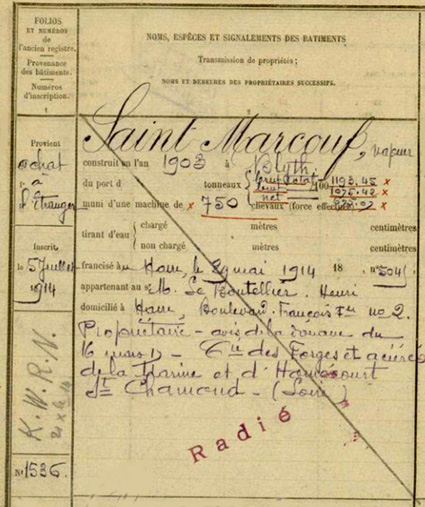 FOLIOS
ET NUMÉROS
de
l'ancien registre.
Provenance
des bâtiments.
Numéros
d'inscription.
1
NOMS, ESPÈCES ET SIGNALEMENTS DES BATIMENTS
Transmission de propriétés;
NOMS ET DEMEURES DES PROPRIÉTAIRES SUCCESSIFS.
2
Provient
achat
à
l'Étranger
Inscrit
le 5 Juillet
1914
K.W.R.N.
N° 1536.
Saint Marcouf, vapeur
construit en l'an 1903 à Blyth
du port de tonneaux brut total 1193.45 x
brut 1076.42 x
net x
muni d'une machine de x 750 chevaux (force effective)
tirant d'eau chargé mètres centimètres
non chargé mètres centimètres
francisé au Havre, le mai 1914 18 n°
appartenant au sr M. Le Boutellier. Henri
domicilié à Havre, Boulevard François Ier no 2.
Propriétaire - avis de la douane du
16 mars - Cie des Forges et aciéries
de la Marine et d'Homécourt
St Chamond - (Loire)
Radié